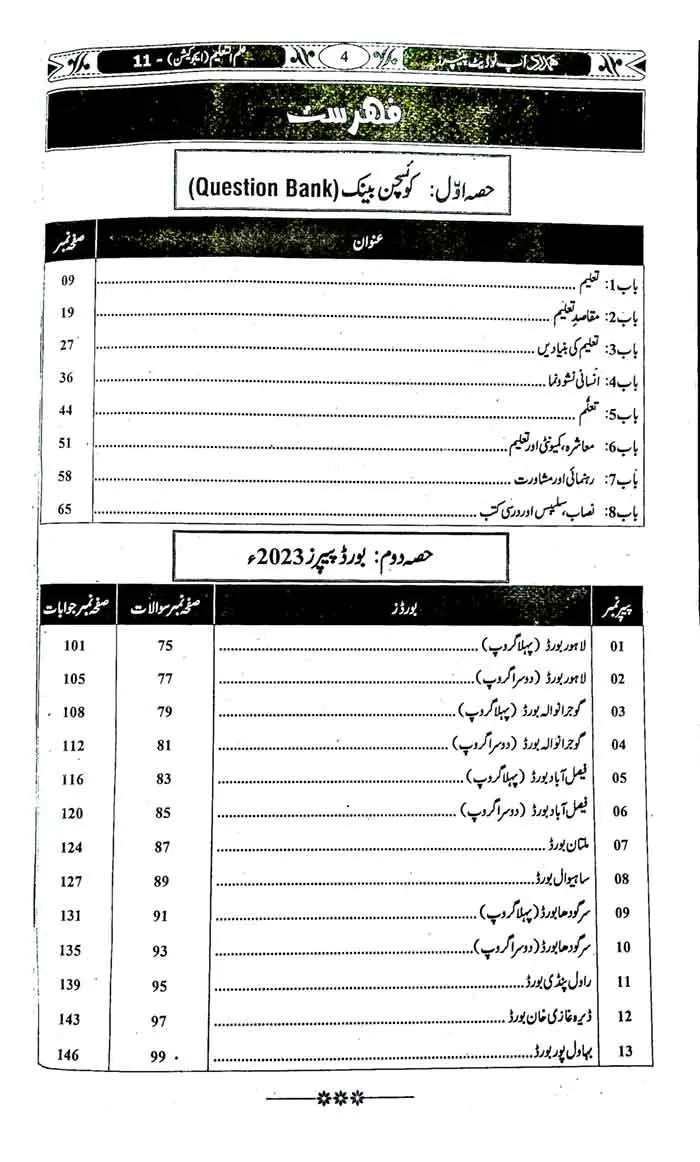 ہمدرد اپ ٹو ڈیٹ پیپرز 4 علم التعلیم (ایجوکیشن) - 11
فہرست
حصہ اوّل: کوئسچن بینک (Question Bank)
عنوان صفحہ نمبر
باب 1: تعلیم 09
باب 2: مقاصدِ تعلیم 19
باب 3: تعلیم کی بنیادیں 27
باب 4: انسانی نشوونما 36
باب 5: تعلّم 44
باب 6: معاشرہ، کمیونٹی اور تعلیم 51
باب 7: رہنمائی اور مشاورت 58
باب 8: نصاب، سلیبس اور درسی کتب 65
حصہ دوم: بورڈ پیپرز 2023ء
پیپر نمبر بورڈز صفحہ نمبر سوالات صفحہ نمبر جوابات
01 لاہور بورڈ (پہلا گروپ) 75 101
02 لاہور بورڈ (دوسرا گروپ) 77 105
03 گوجرانوالہ بورڈ (پہلا گروپ) 79 108
04 گوجرانوالہ بورڈ (دوسرا گروپ) 81 112
05 فیصل آباد بورڈ (پہلا گروپ) 83 116
06 فیصل آباد بورڈ (دوسرا گروپ) 85 120
07 ملتان بورڈ 87 124
08 ساہیوال بورڈ 89 127
09 سرگودھا بورڈ (پہلا گروپ) 91 131
10 سرگودھا بورڈ (دوسرا گروپ) 93 135
11 راولپنڈی بورڈ 95 139
12 ڈیرہ غازی خان بورڈ 97 143
13 بہاول پور بورڈ 99 146